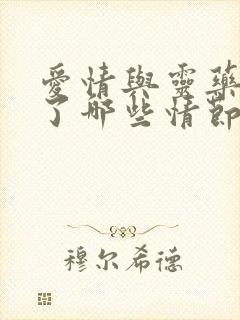 愛情與靈藥
了哪些情節
穆尔希德